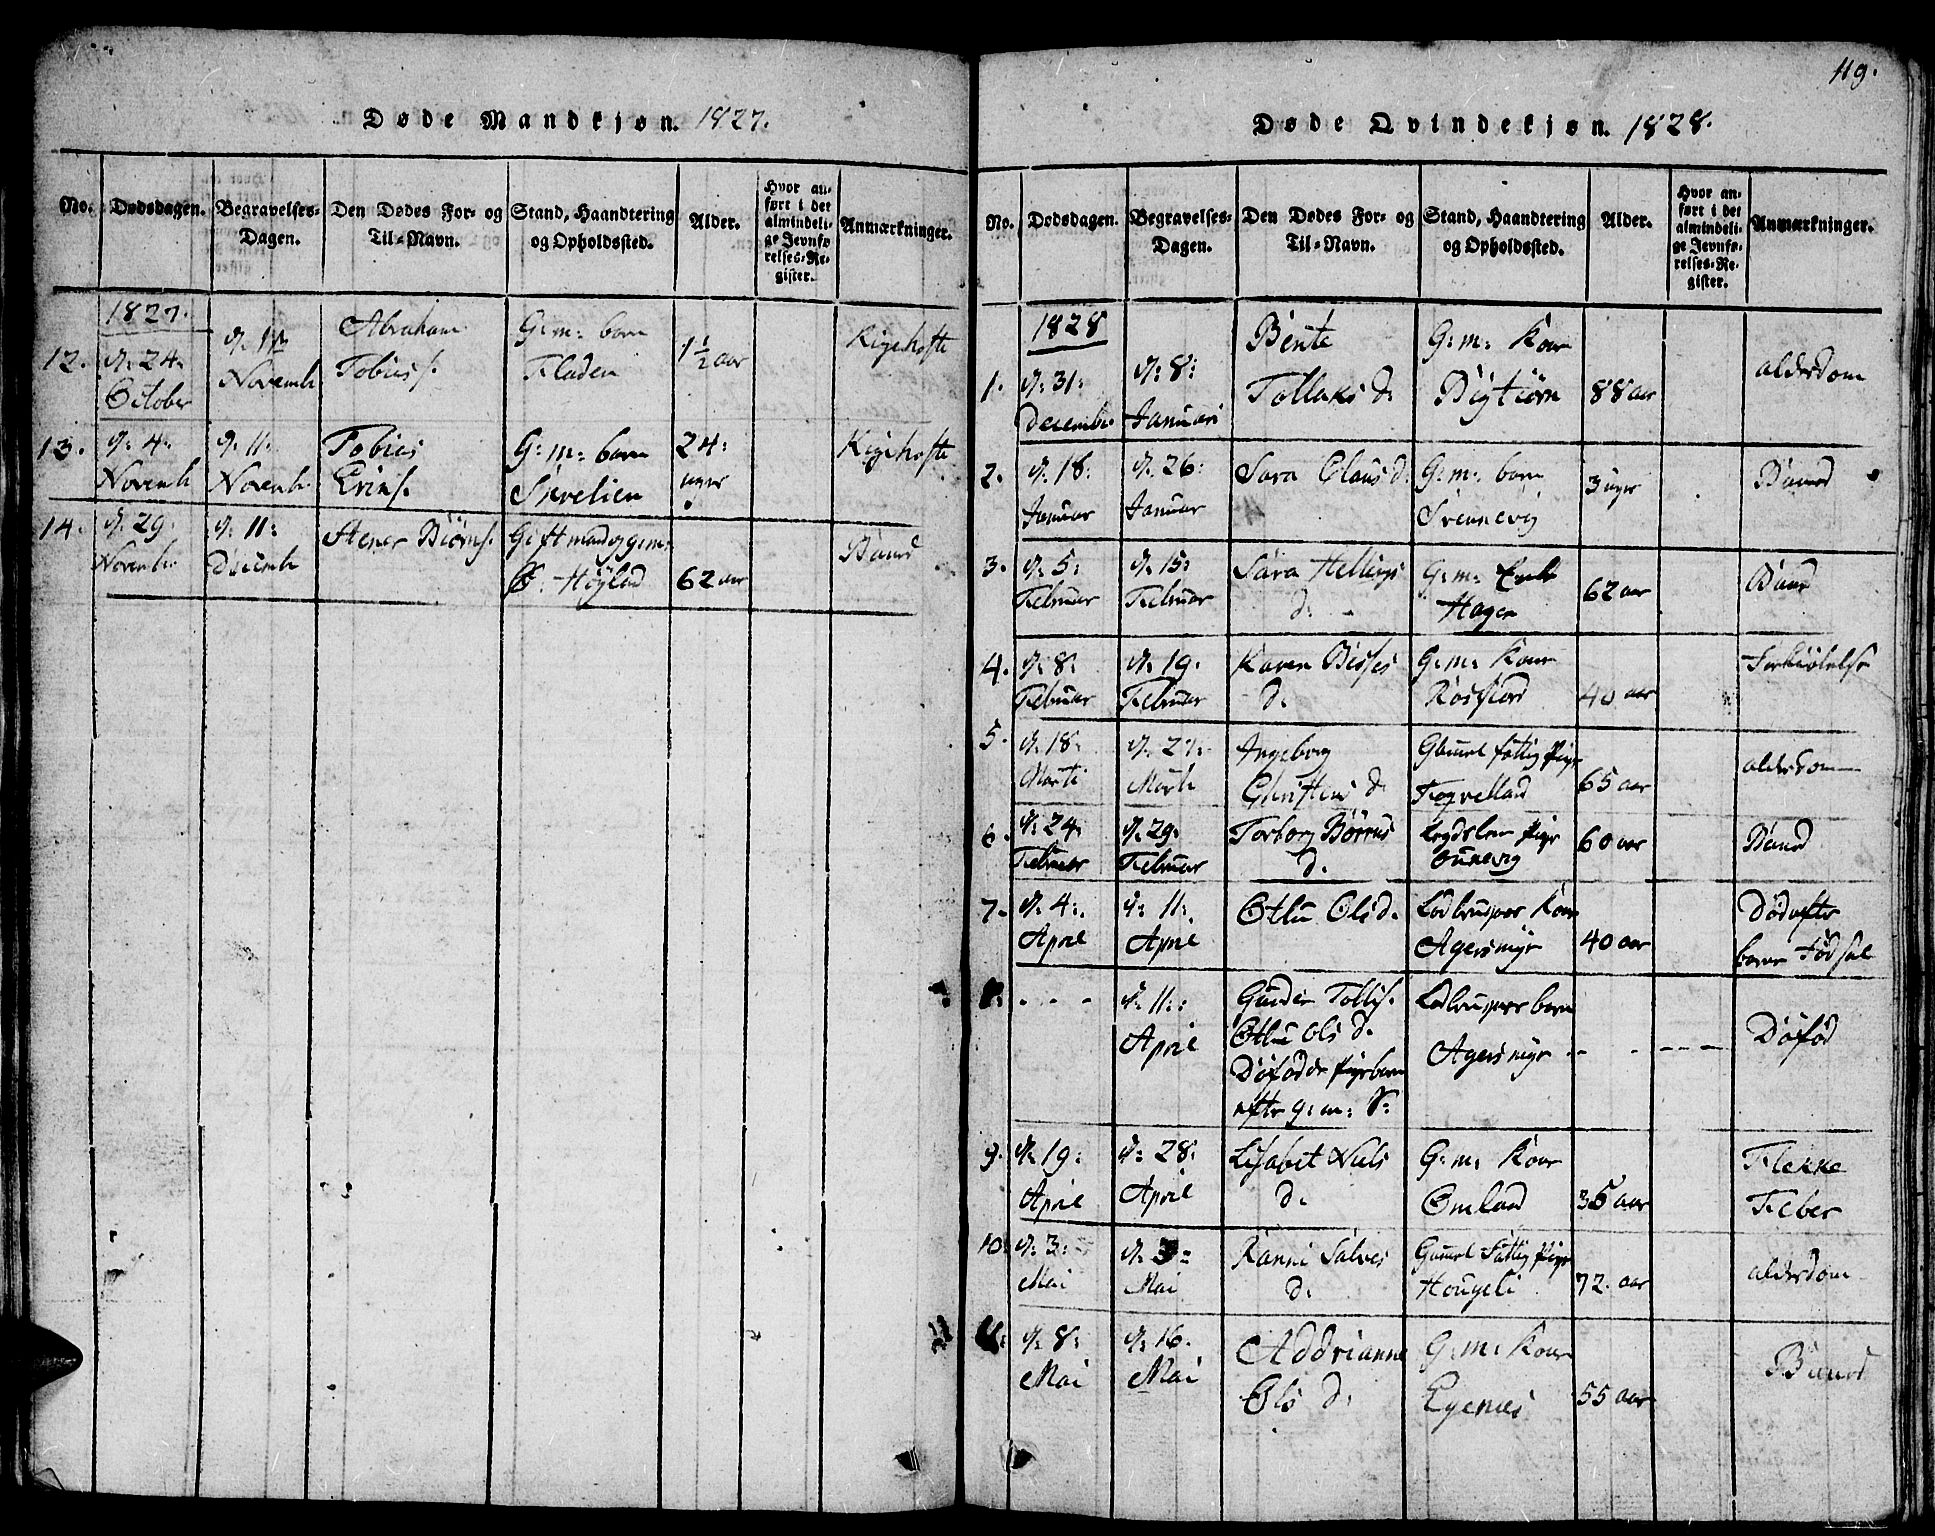 Døde Mandkjøn. 1827.
No. Dødsdagen. Begravelses-Dagen. Den Dødes For- og Til-Navn. Stand, Haandtering og Opholdssted. Alder. Hvor anført i det almindelige Jevnførelses-Register. Anmærkninger.
1827.
12. d. 24. October
Novemb
Abraham Tobies s.
G: m: barn Fladen
1½ aar
Kigehoste
13. d. 4. Novemb
d. 11. Novemb
Tobias
G: m: barn
24: uger
Kigehoste
14. d. 29. Novemb.
d. 11: Decemb
Stener Biørns.
Gift mand og g: m:
62 aar
119.
Døde Qvindekjøn. 1828.
No. Dødsdagen. Begravelses-Dagen. Den Dødes For- og Til-Navn. Stand, Haandtering og Opholdssted. Alder. Hvor anført i det almindelige Jevnførelses-Register. Anmærkninger.
1828
1. d: 31: Decemb.
d: 8: Januari
Bente Tollaks d.
G: m: Kone
88 aar
alderdom
2. d. 18. Januar
d. 26: Januar
Sara Olaus d.
G: m: barn Svennevig
3 uger
3. d: 5: Februar
d. 15: Februar
Sara Hellieys d.
G: m: Enke Hagen
62 aar
4. d. 8: Februar
d. 19. Februar
Karen d.
G: m: Kone Rosfiord
40 aar
Forkiølelse
5. d. 18. Marti
d. 27. Marti
Ingeborg Christens d.
Gamel fattig Pige
65 aar
alderdom
6. d. 24. Februar
d. 29. Februar
Torborg d.
Legdslem Pige
60 aar
7. d. 4. April
d. 11: April
Olsd.
Kone Agersmyr
40 aar
Død efter barne Fødsel
8. - - -
d. 11: April
Gunder Tollis.
Ols d.
Døfødde Pigebarn efter g: m: F:
barn Agersmyr
- - - - -
Døfød
9. d. 19: April
d: 28: April
Lisabet Niels d.
G: m: Kone Omland
35 aar
Flekke Feber
10. d. 3: Mai
d. 3: Mai
Ranni Salves d.
Gamel Fattig Pige Hougeli
72. aar
alderdom
11: d. 8: Mai
d. 16. Mai
Addrianne Ols d.
G: m: Kone Egenæs
55 aar